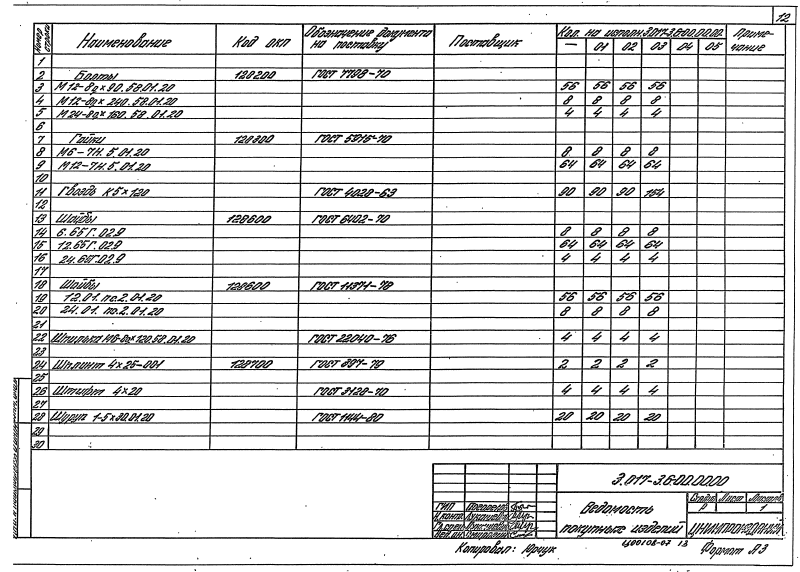 12
Номер строки Наименование Код ОКП Обозначение документа на поставку Поставщик Кол. на исполн. 3.017-3.6-00.00.00 Примечание
— 01 02 03 04 05
1
2 Болты 128200 ГОСТ 7798-70
3 М12-8g×90.58.01.20 56 56 56 56
4 М12-8g×240.58.01.20 8 8 8 8
5 М24-8g×160.58.01.20 4 4 4 4
6
7 Гайки 128300 ГОСТ 5915-70
8 М6-7Н.5.01.20 8 8 8 8
9 М12-7Н.5.01.20 64 64 64 64
10
11 Гвоздь К5×120 ГОСТ 4028-63 90 90 90 154
12
13 Шайбы 128600 ГОСТ 6402-70
14 6.65Г.02.9 8 8 8 8
15 12.65Г.02.9 64 64 64 64
16 24.65Г.02.9 4 4 4 4
17
18 Шайбы 128600 ГОСТ 11371-78
19 12.01.по.2.01.20 56 56 56 56
20 24.01.по.2.01.20 8 8 8 8
21
22 Шпилька М6-8g×120.58.01.20 ГОСТ 22040-76 4 4 4 4
23
24 Шплинт 4×25-001 128700 ГОСТ 397-79 2 2 2 2
25
26 Штифт 4×20 ГОСТ 3128-70 4 4 4 4
27
28 Шуруп 1-5×30.01.20 ГОСТ 1144-80 20 20 20 20
29
30
3.017-3.6-00.00.00
ГИП
Н.контр.
Ведомость покупных изделий
Стадия Лист Листов
Р 1
ЦНИИпромзданий
Ц00108-07 13
Копировал: Юрчук Формат А3